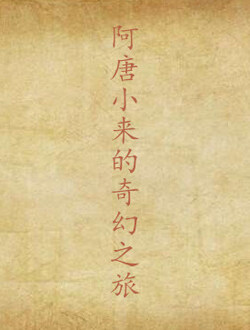 阿唐小来的奇幻之旅